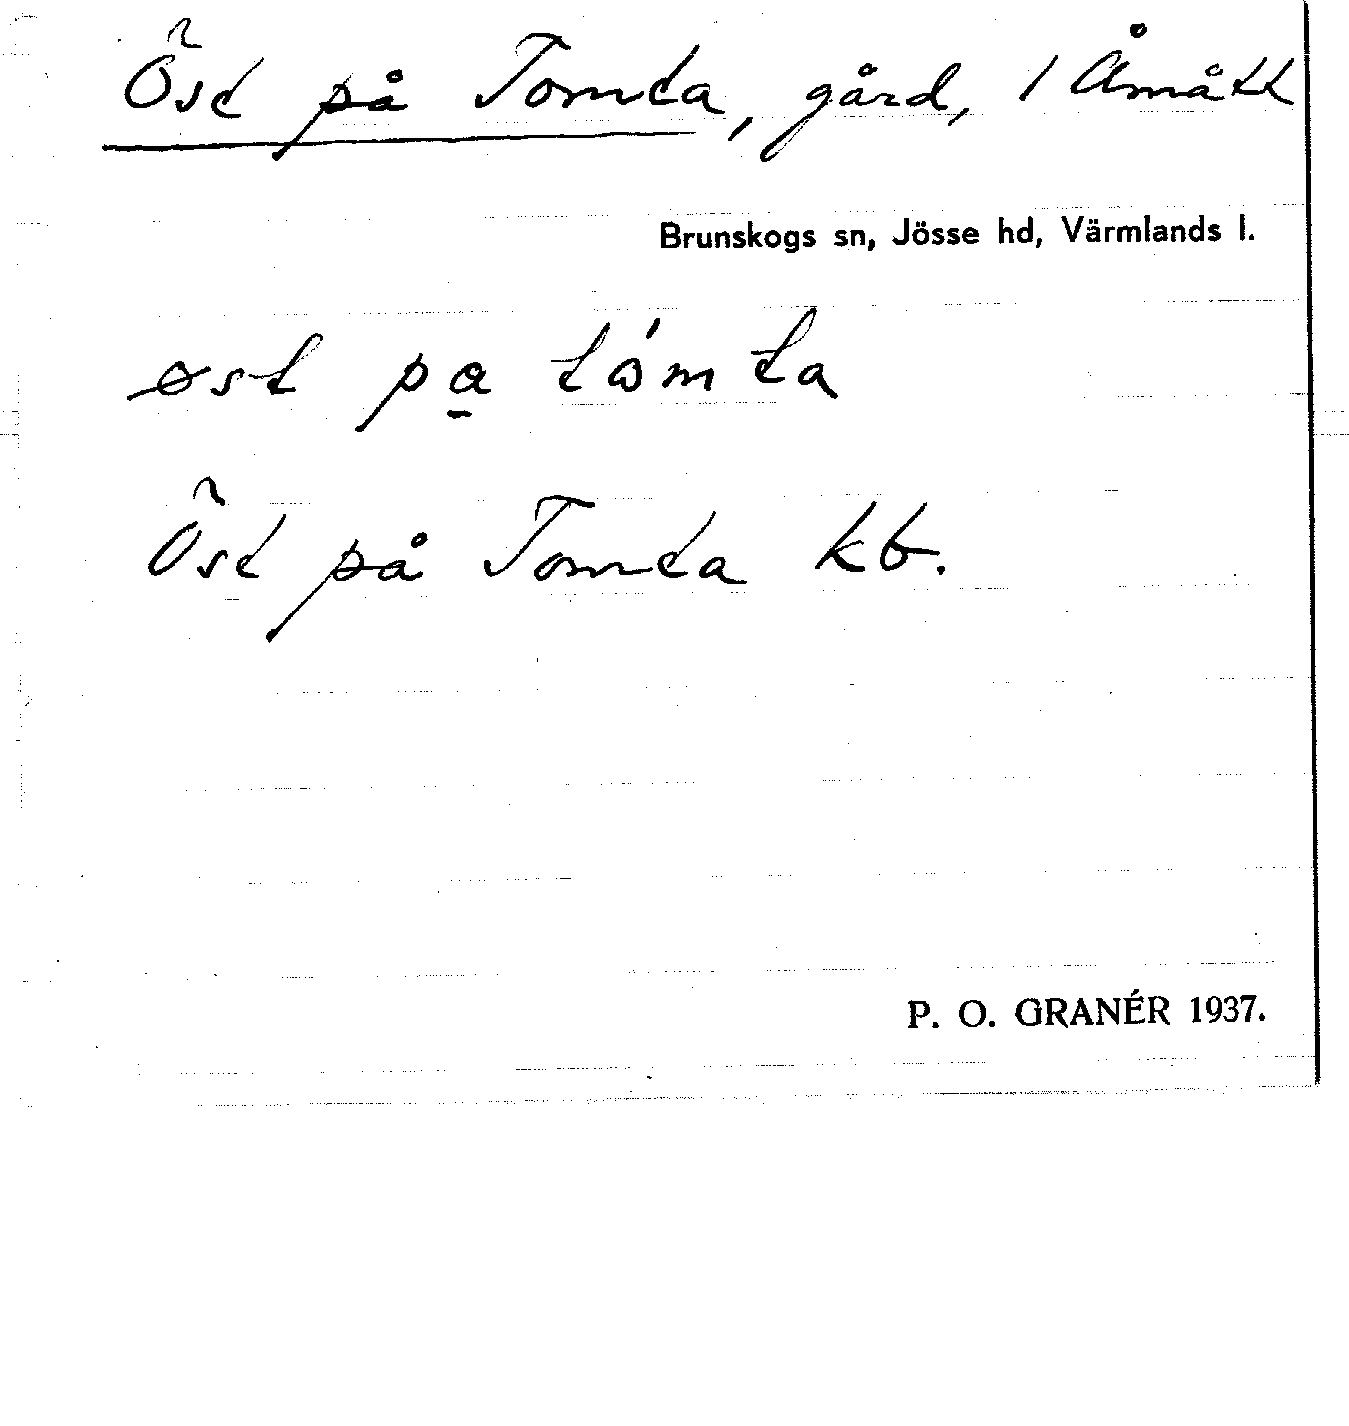 Öst på Tomta, gård, 1 Åmått
Brunskogs sn, Jösse hd, Värmlands l.
øst pa̲ tómta
Öst på Tomta kb.
P. O. GRANÉR 1937.